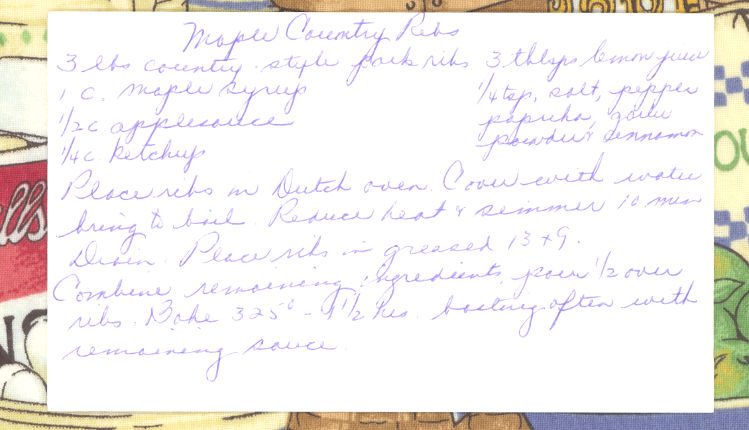 Maple Country Ribs
3 lbs country style pork ribs 3 tblsps lemon juice
1 c. maple syrup 1/4 tsp, salt, pepper
1/2 c applesauce paprika, garlic
1/4 c. ketchup powder & cinnamon
Place ribs in Dutch oven. Cover with water
bring to boil. Reduce heat & simmer 10 min
Drain. Place ribs in greased 13 x 9.
Combine remaining ingredients, pour 1/2 over
ribs. Bake 325° - 1 1/2 hrs. basting often with
remaining sauce.